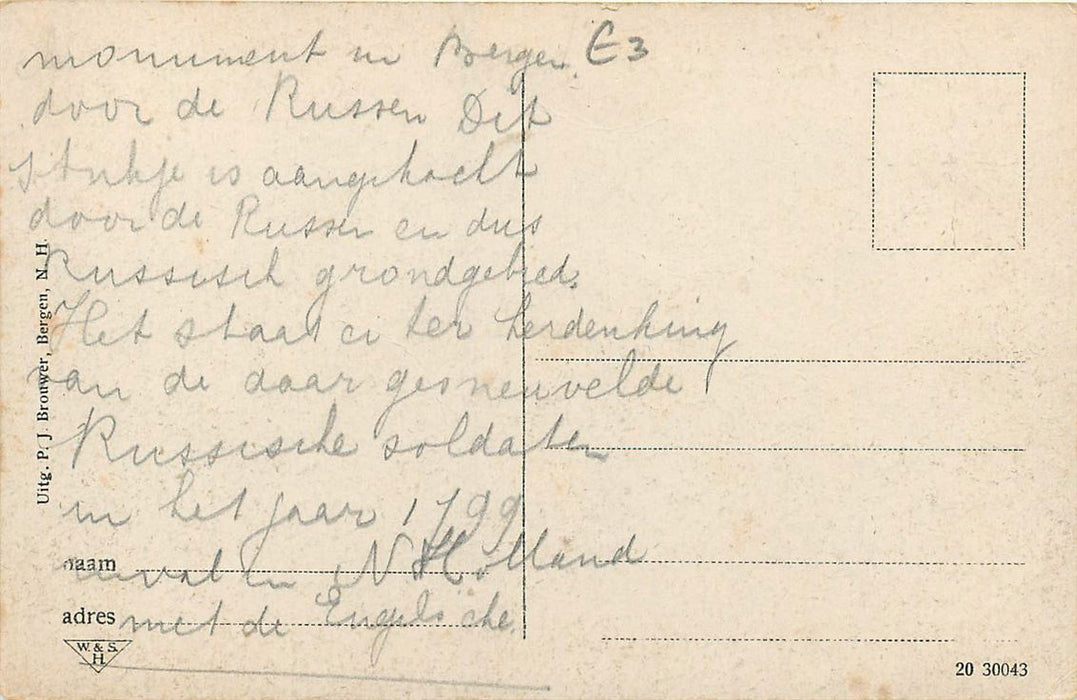 monument in Bergen. E3
door de Russen Dit
stukje is aangekocht
door de Russen en dus
Russisch grondgebied.
Het staat er ter herdenking
van de daar gesneuvelde
Russische soldaten
in het jaar 1799
inval in N Holland
met de Engelsche.
naam
adres
Uitg. P. J. Brouwer, Bergen, N. H.
W. & S.
H.
20 30043